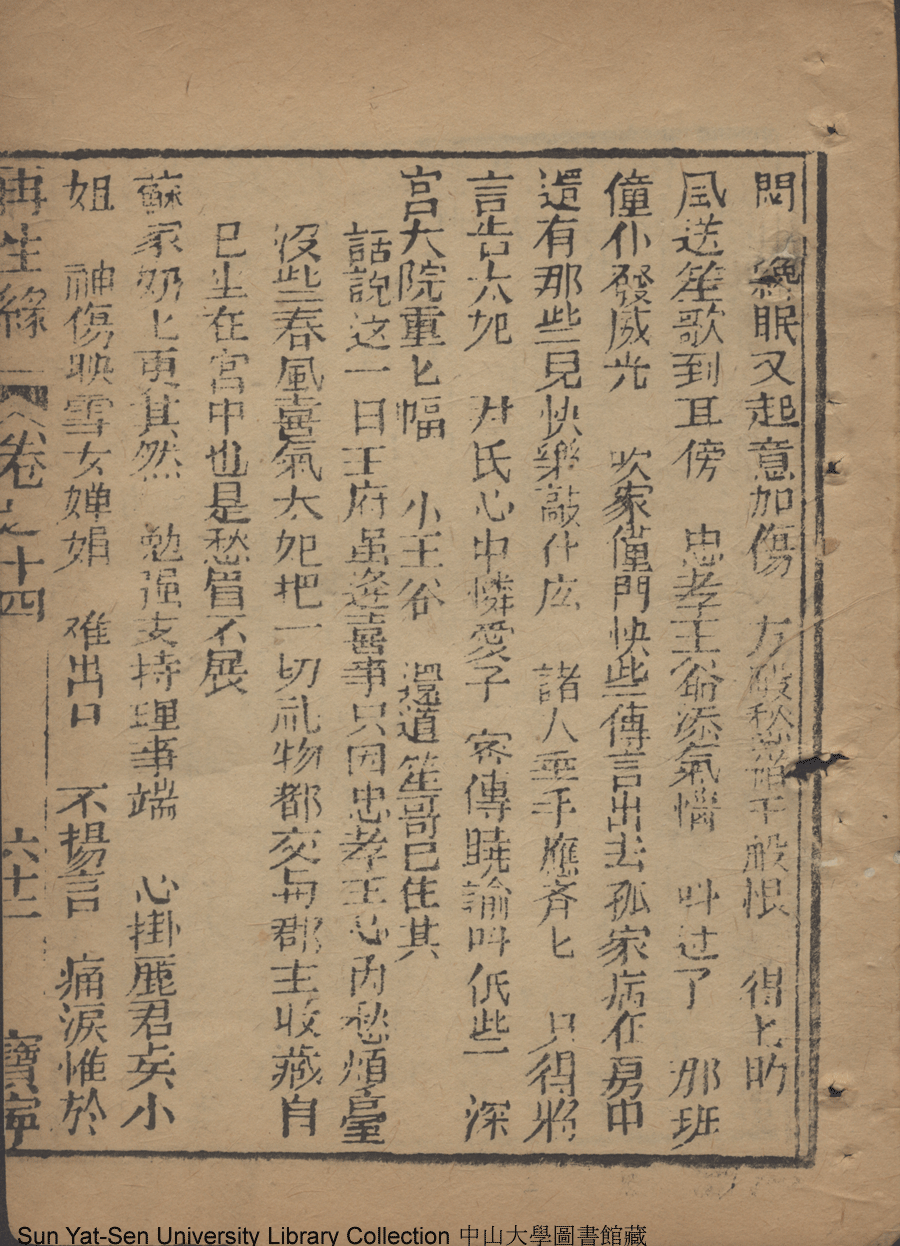 悶 纔眠又起意加傷 方散愁 千般恨 得匕昀
風送笙歌到耳傍 忠孝王爺添氣惱 叫过了 那班
僮仆發威光 吹家僮門快些傳言出去孤家病在房中
還有那些見快樂敲什庅 諸人垂手應斉匕 只得將
言告太妃 尹氏心中憐愛子 客傳曉諭叫低些 深
宮大院重匕幅 小王谷 還道笙哥已住其
話說这一日王府虽逢喜事只因忠孝王心內愁煩臺
沒些春風喜氣太妃把一切礼物都交与郡主收藏自
己坐在宮中也是愁眉不展
蘇家奶匕更甚然 勉强支持理事端 心掛麗君矣小
姐 神傷映雪女嬋娟 难出口 不揚言 痛淚惟於
再生緣 卷之十四 六十二 寶寧
Sun Yat-Sen University Library Collection 中山大學圖書館藏